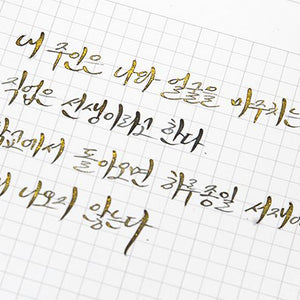 내 주인은 나와 얼굴을 마주치는
직업은 선생이라고 한다.
교에서 돌아오면 하루종일 서재에
나오지 않는다